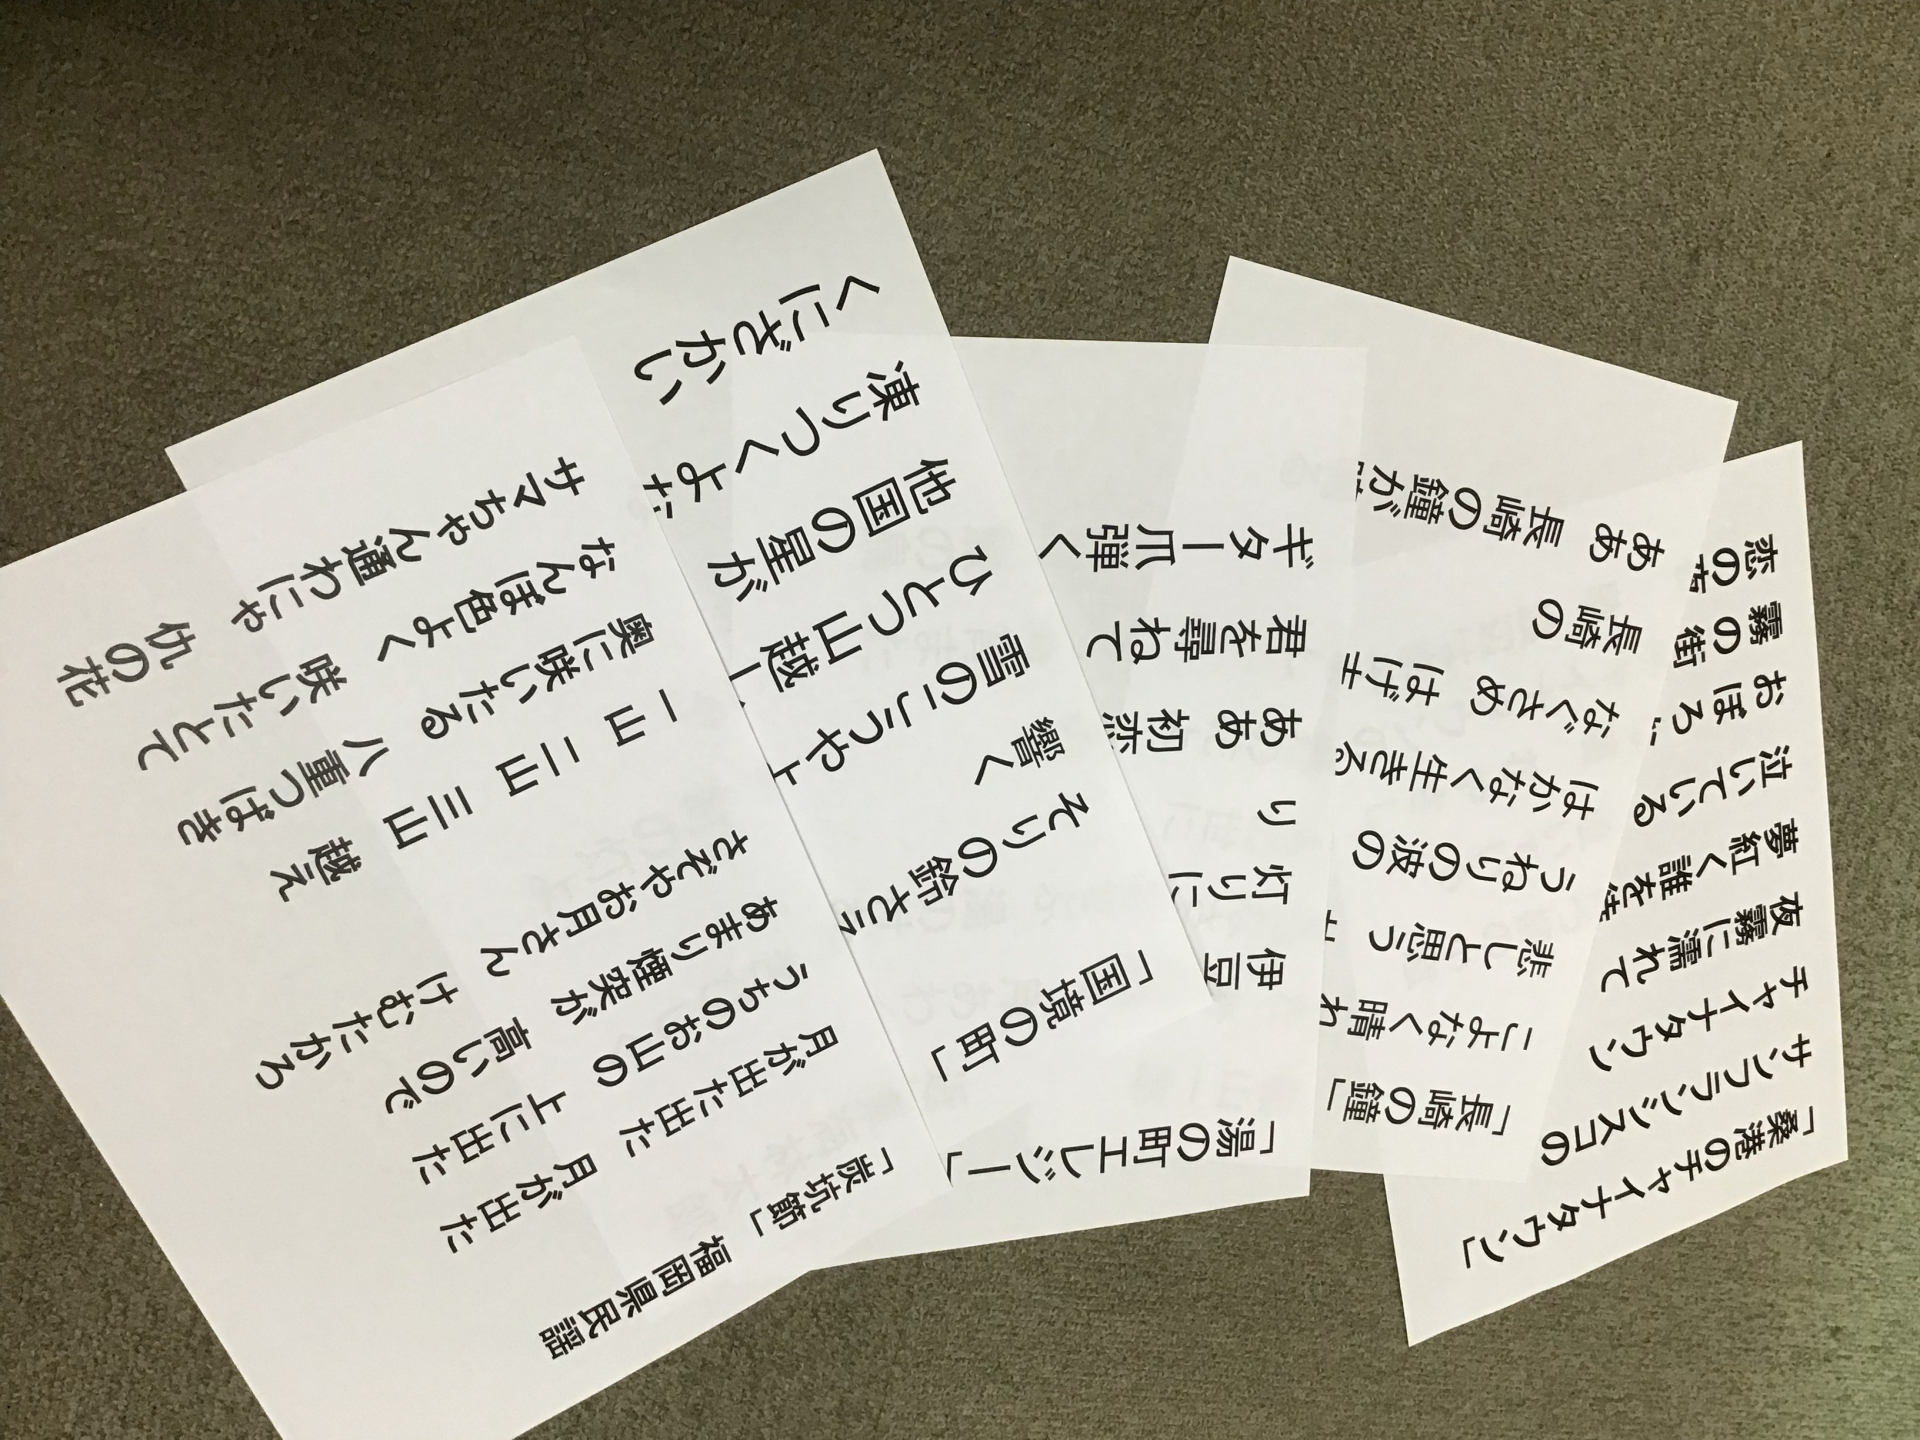 「炭坑節」 福岡県民謡
月が出た出た 月が出た
うちのお山の 上に出た
あまり煙突が 高いので
さぞやお月さん けむたかろ
一山 二山 三山 越え
奥に咲いたる 八重つばき
なんぼ色よく 咲いたとて
サマちゃん通わにゃ 仇の花
「国境の町」
そりの鈴さえ
響く
雪のこうや
ひとつ山越
他国の星が
凍りつくよ
くにざかい
「湯の町エレジー」
伊豆
灯りに
り
ああ 初恋
君を尋ねて
ギター爪弾く
「長崎の鐘」
こよなく晴れ
悲しと思う
うねりの波の
はかなく生きる
なぐさめ はげ
長崎の
ああ 長崎の鐘が
「桑港のチャイナタウン」
サンフランシスコの
チャイナタウン
夜霧に濡れて
夢紅く誰を
泣いている
おぼろ
霧の街
恋の